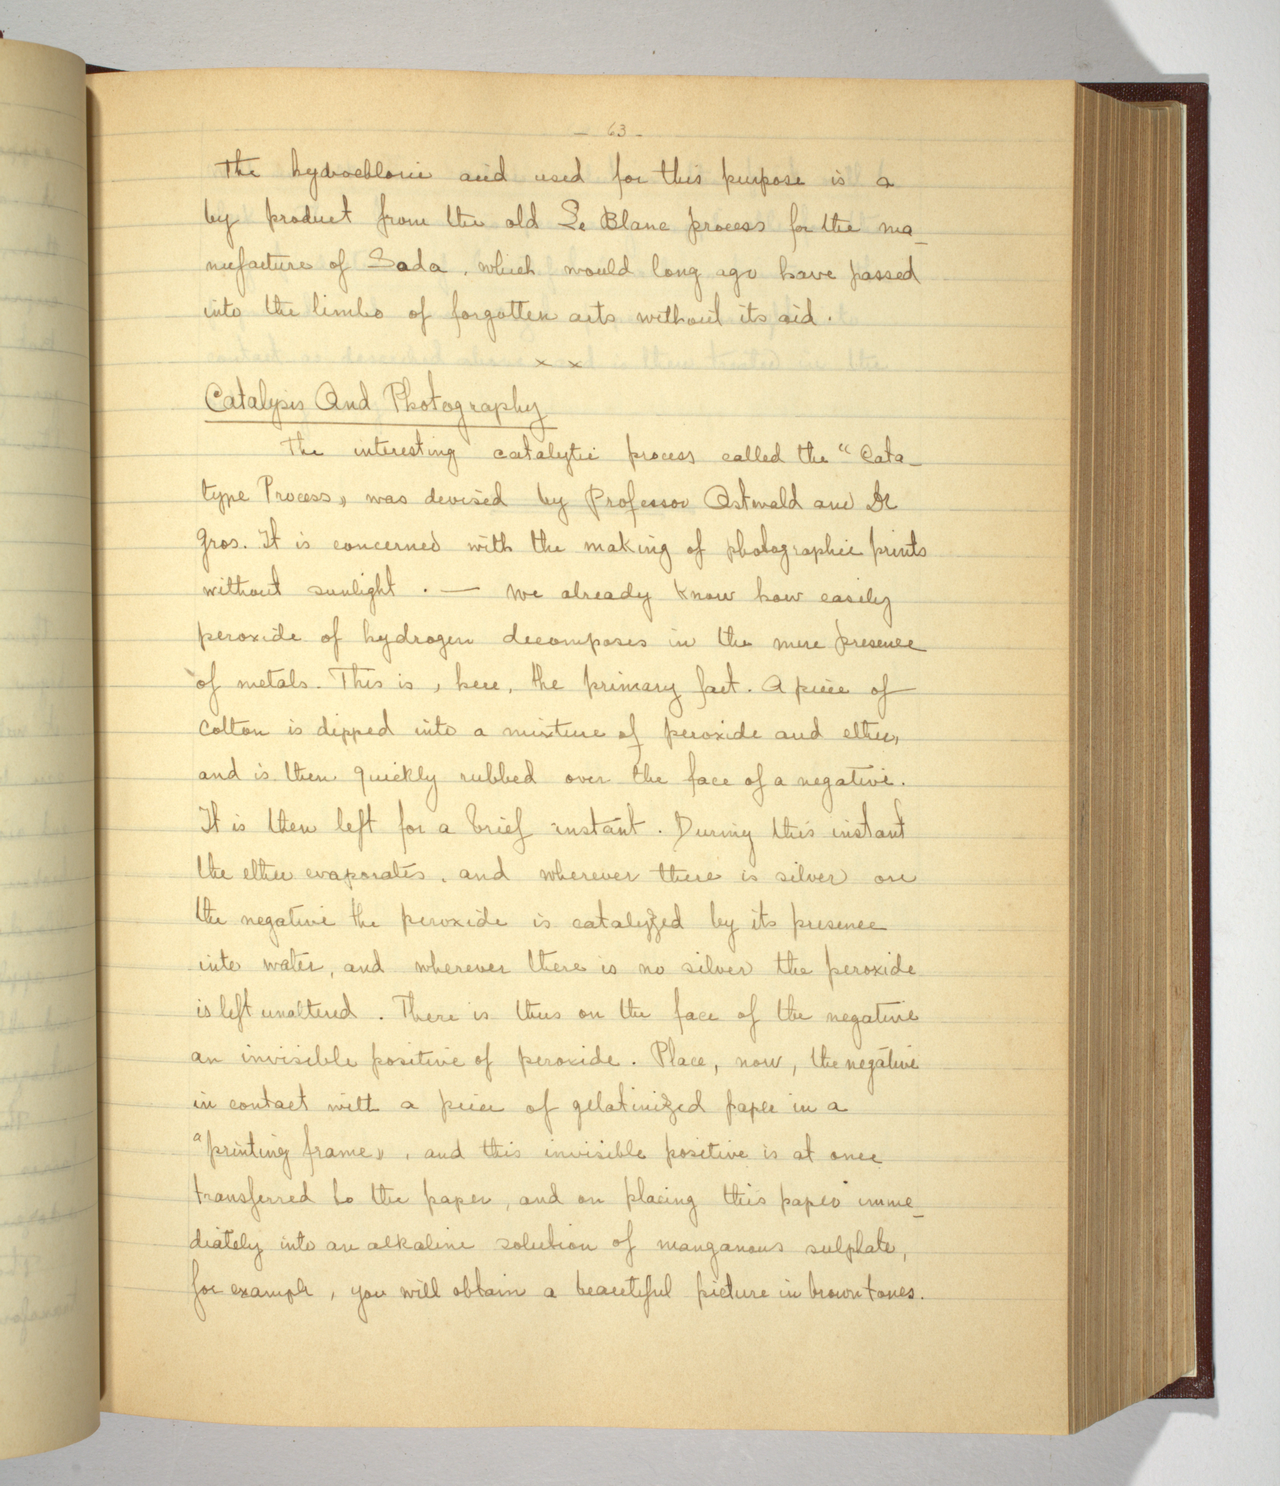 - 63 -
The hydrochloric acid used for this purpose is a
by product from the old Le Blanc process for the ma_
nufacture of Soda, which would long ago have passed
into the limbo of forgotten arts without its aid.
× ×
Catalysis And Photography
The interesting catalytic process called the "Cata_
type Process" was devised by Professor Ostwald and Dr
Gros. It is concerned with the making of photographic prints
without sunlight. — We already know how easily
peroxide of hydrogen decomposes in the mere presence
of metals. This is, here, the primary fact. A piece of
cotton is dipped into a mixture of peroxide and ether,
and is then quickly rubbed over the face of a negative.
It is then left for a brief instant. During this instant
the ether evaporates, and wherever there is silver on
the negative the peroxide is catalyzed by its presence
into water, and wherever there is no silver the peroxide
is left unaltered. There is thus on the face of the negative
an invisible positive of peroxide. Place, now, the negative
in contact with a piece of gelatinized paper in a
"printing frame", and this invisible positive is at once
transferred to the paper, and on placing this paper imme_
diately into an alkaline solution of manganous sulphate,
for example, you will obtain a beautiful picture in brown tones.